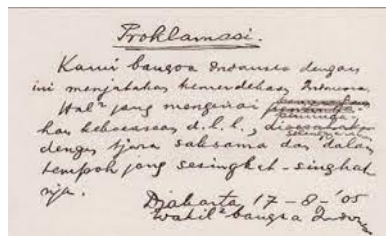 Proklamasi.
Kami bangsa Indonesia dengan
ini menjatakan kemerdekaan Indonesia.
Hal² jang mengenai
han kekoeasaan d.l.l.,
dengan tjara saksama dan dalam
tempoh jang sesingkat-singkat
nja.
Djakarta 17 - 8 - '05
Wakil² bangsa Indon